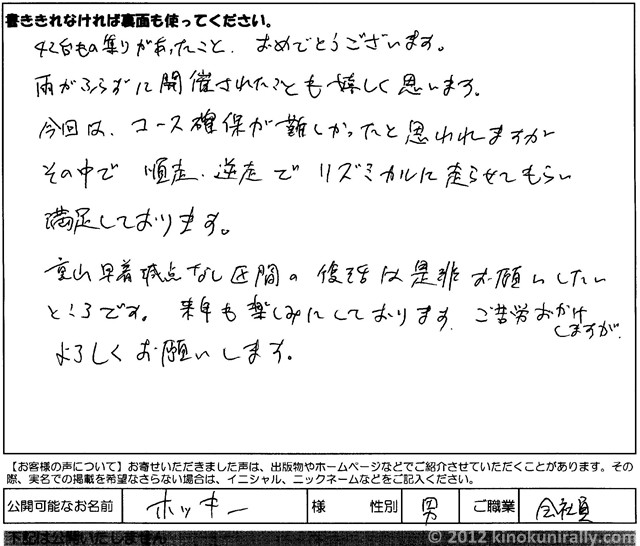 書ききれなければ裏面も使ってください。
42台もの集りがあったこと、おめでとうございます。
雨がふらずに開催されたことも嬉しく思います。
今回は、コース確保が難しかったと思われますが
その中で 順走、逆走で リズミカルに走らせてもらい
満足しております。
京山早着減点なし区間の復活は是非お願いしたい
ところです。来年も楽しみにしております。ご苦労おかけ
しますが、
よろしくお願いします。
【お客様の声について】お寄せいただきました声は、出版物やホームページなどでご紹介させていただくことがあります。その
際、実名での掲載を希望なさらない場合は、イニシャル、ニックネームなどをご記入ください。
公開可能なお名前 ホッキー 様 性別 男 ご職業 会社員
下記は公開いたしません
© 2012 kinokunirally.com